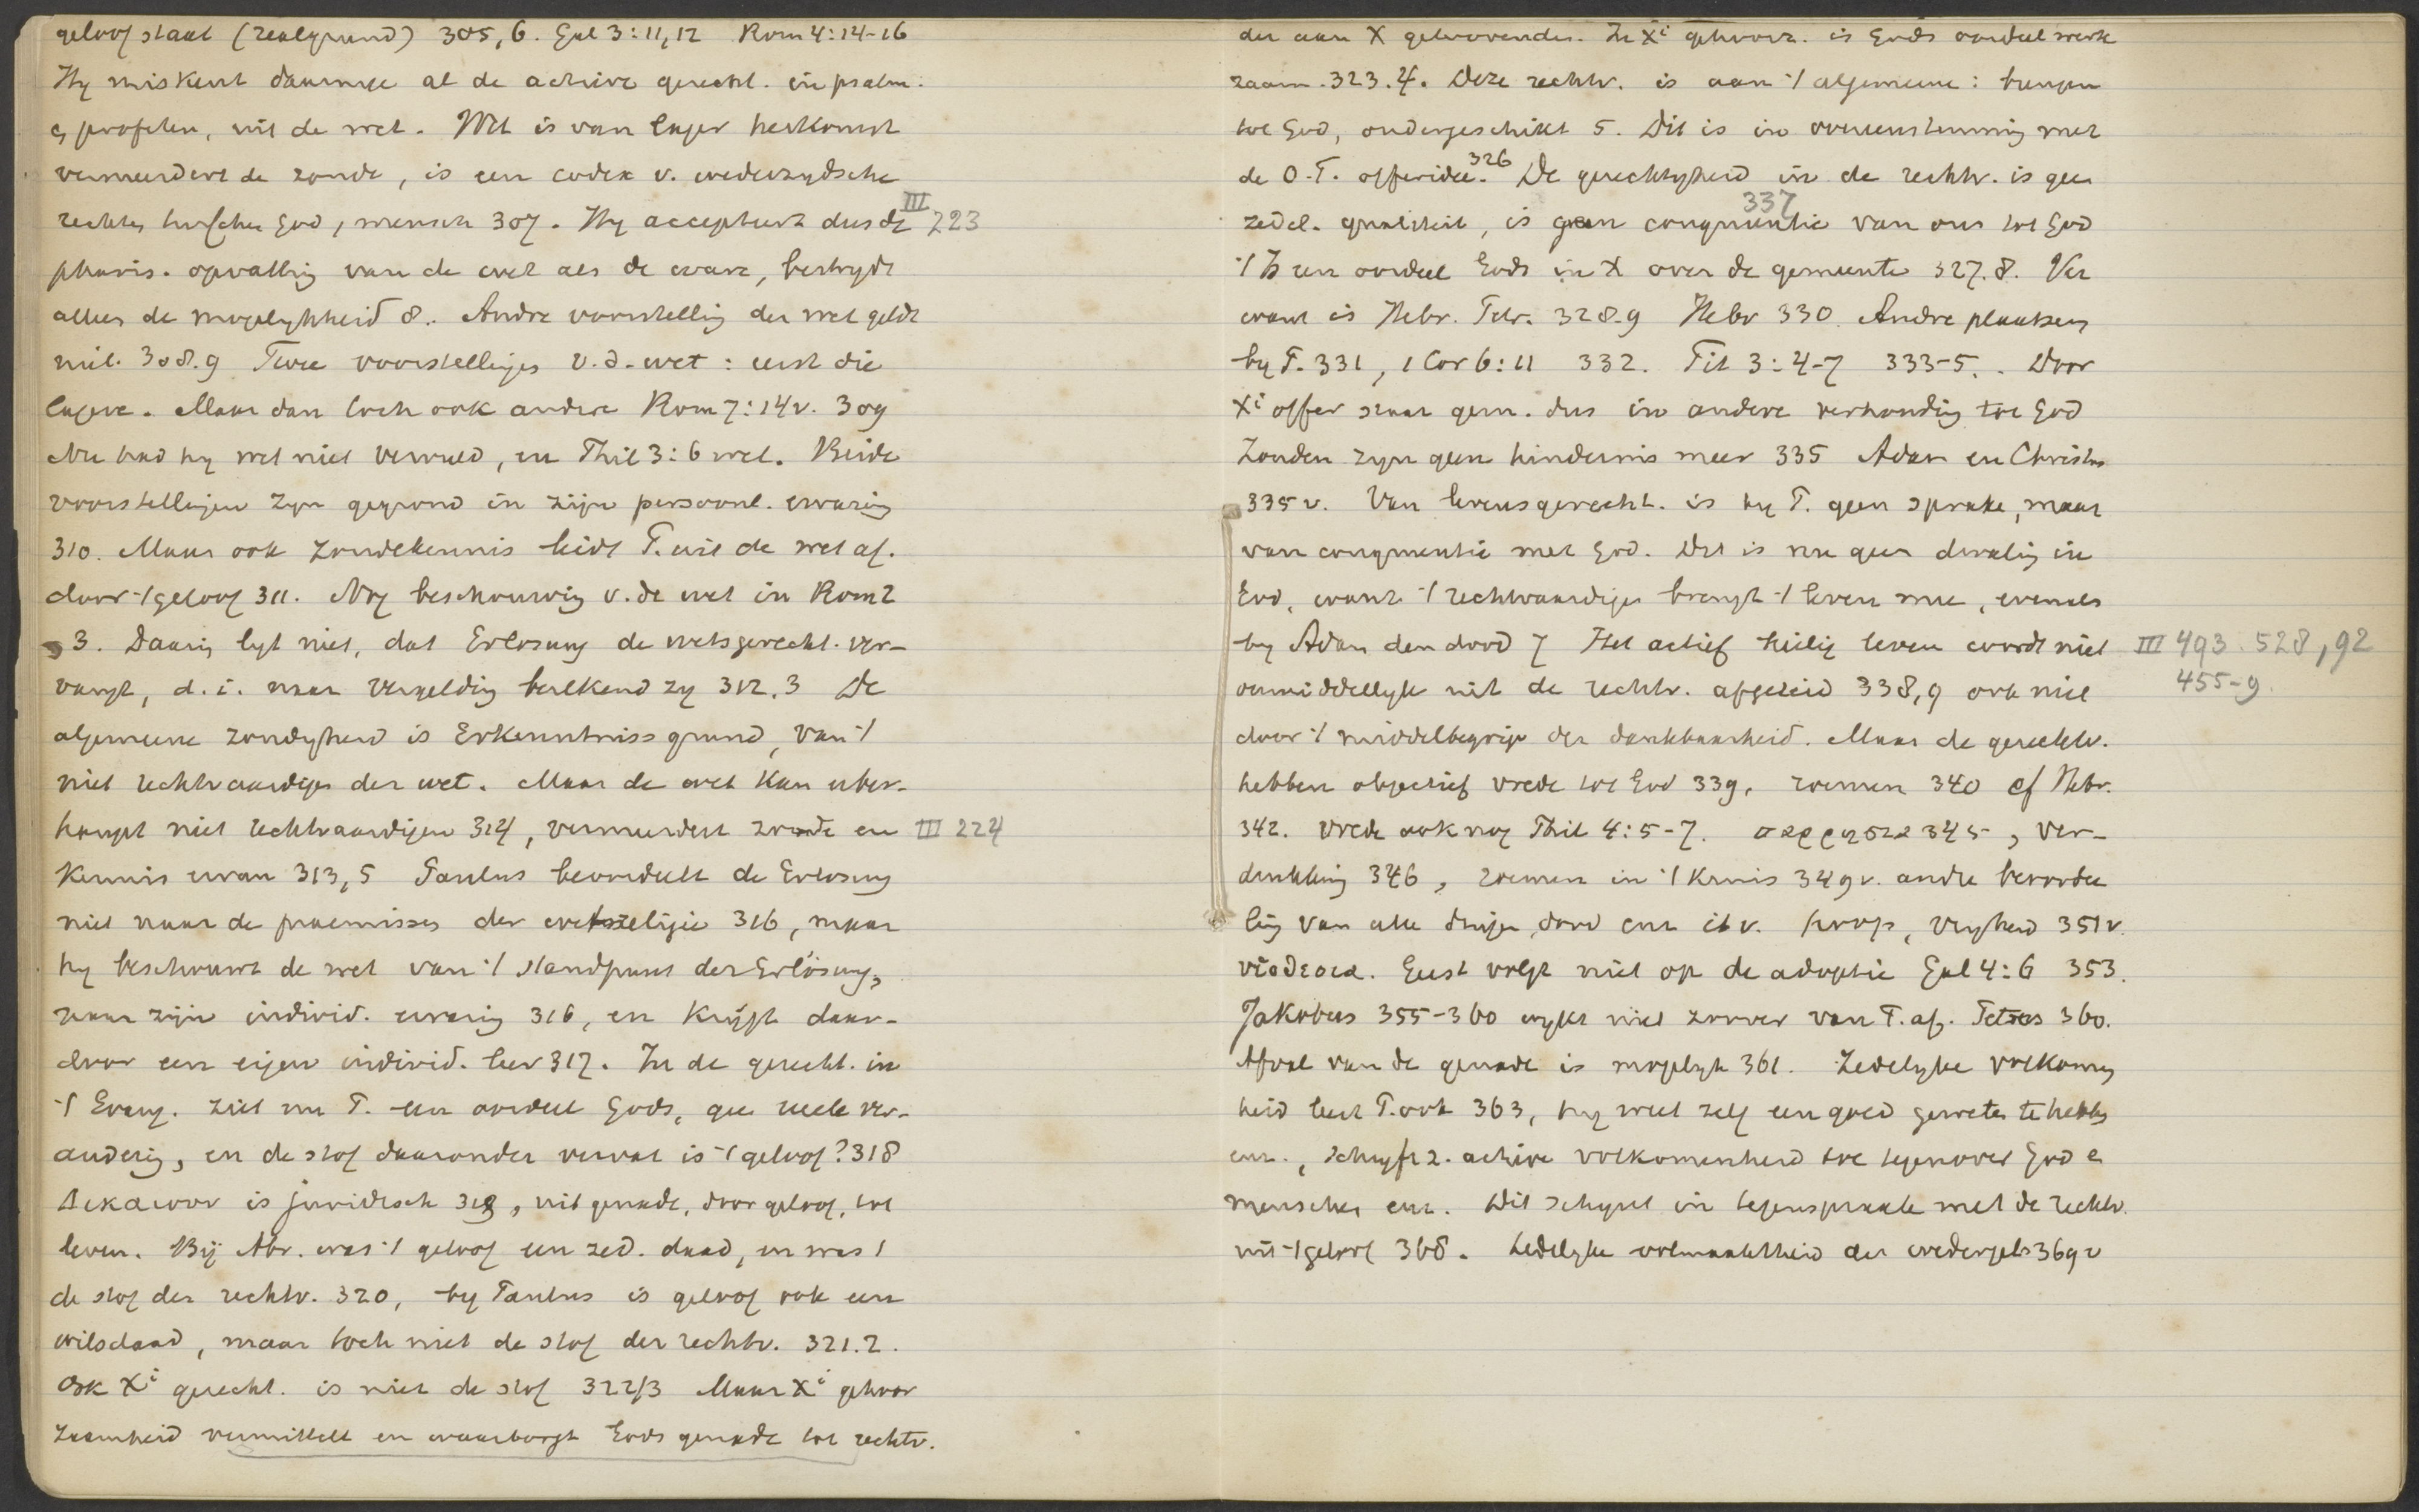 geloof staat (realgrund) 305,6. Gal 3:11,12 Rom 4:14-16
Hy miskent daarmee al de active gerecht. in psalm.
en profeten, uit de wet. Wet is van lager herkomst
vermeerdert de zonde, is een codex v. wederzydsche
rechten tusschen God, mensch 307. Hy accepteert dus de III 223
pharis. opvatting van de wet als de ware, bestrydt
alleen de mogelykheid 8. Andre voorstelling der wet geldt
niet. 308.9 Twee voorstellinges v.d. wet: eerst die
lagere. Maar dan toch ook andere Rom 7:14v. 309
Nu had hy wet niet vervuld, en Phil 3:6 wel. Beide
voorstellingen zyn gegrond in zijn persoonl. ervaring
310. Maar ook zondekennis leidt P. uit de wet af.
door 't geloof 311. Nog beschouwing v. de wet in Rom 2
, 3. Daarin lyt niet, dat Erlösung de wetsgerecht. ver-
vangt, d.i. naar vergelding berekend zy 312.3 De
algemeene zondigheid is Erkenntnissgrund, van 't
niet rechtvaardigen der wet. Maar de wet kan über-
haupt niet rechtvaardigen 314, vermeerdert zonde en III 224
kennis ervan 313,5 Paulus beoordeelt de Erlösung
niet naar de praemissen der wetsreligie 316, maar
hy beschouwt de wet van 't standpunt der Erlösung,
naar zijn individ. ervaring 316, en krijgt daar-
door een eigen individ. leer 317. In de gerecht. in
't Evang. ziet nu P. een oordeel Gods, gee reele ver-
andering, en de stof daaronder vervat is 't geloof? 318
Δικαιουν is juridisch 319, uit genade, door geloof, tot
leven. Bij Abr. was 't geloof een zed. daad, en was 't
de stof der rechtv. 320, by Paulus is geloof ook een
wilsdaad, maar toch niet de stof der rechtv. 321.2.
Ook Xi gerecht. is niet de stof 322/3 Maar Xi gehoor
zaamheid vermittelt en waarborgt Gods genade tot rechtv.
der aan X geloovenden. In Xi gehoorz. is Gods oordeel werk
zaam. 323.4. Deze rechtv. is aan 't algemeene: brengen
tot God, ondergeschikt 5. Dit is in overeenstemming met
de O.T. offeridee. 326 De gerechtigheid in de rechtv. is geen
zedel. qualiteit, is geen congruentie van ons tot God 337
't Is een oordeel Gods in X over de gemeente 327.8. Ver
want is Hebr. Petr. 328.9 Hebr 330. Andre plaatsen
by P. 331, 1 Cor 6:11 332. Tit 3:4-7 333-5. Door
Xi offer staat gem. dus in andere verhouding tot God
Zonden zyn geen hindernis meer 335 Adam en Christus
335v. Van levensgerecht. is by P. geen sprake, maar
van congruentie met God. Dit is nu geen dwaling in
God, want 't rechtvaardigen brengt 't leven mee, evenals
by Adam den dood 7 Het actief heilig leven wordt niet III 493. 528, 92
onmiddellyk uit de rechtv. afgeleid 338,9 ook niet 455-9.
door 't middelbegrip der dankbaarheid. Maar de gerechtv.
hebben objectief vrede tot God 339, roemen 340 cf Hebr.
342. Vrede ook nog Phil 4:5-7. παρρησια 345, ver-
drukking 346, roemen in 't kruis 349v. andre beoordee
ling van alle dingen, dood enz ibv. hoop, vryheid 351v.
υἱοθεσια. Geest volgt niet op de adoptie Gal 4:6 353.
Jakobus 355-360 wykt niet zoover van P. af. Petrus 360.
Afval van de genade is mogelyk 361. Zedelyke volkomen
heid leert P. ook 363, hy weet zelf een goed geweten te hebben
enz., schryft z. active volkomenheid toe tegenover God en
menschen enz. Dit schynt in tegenspraak met de rechtv.
uit 't geloof 368. Zedelyke volmaaktheid der wedergeb. 369v